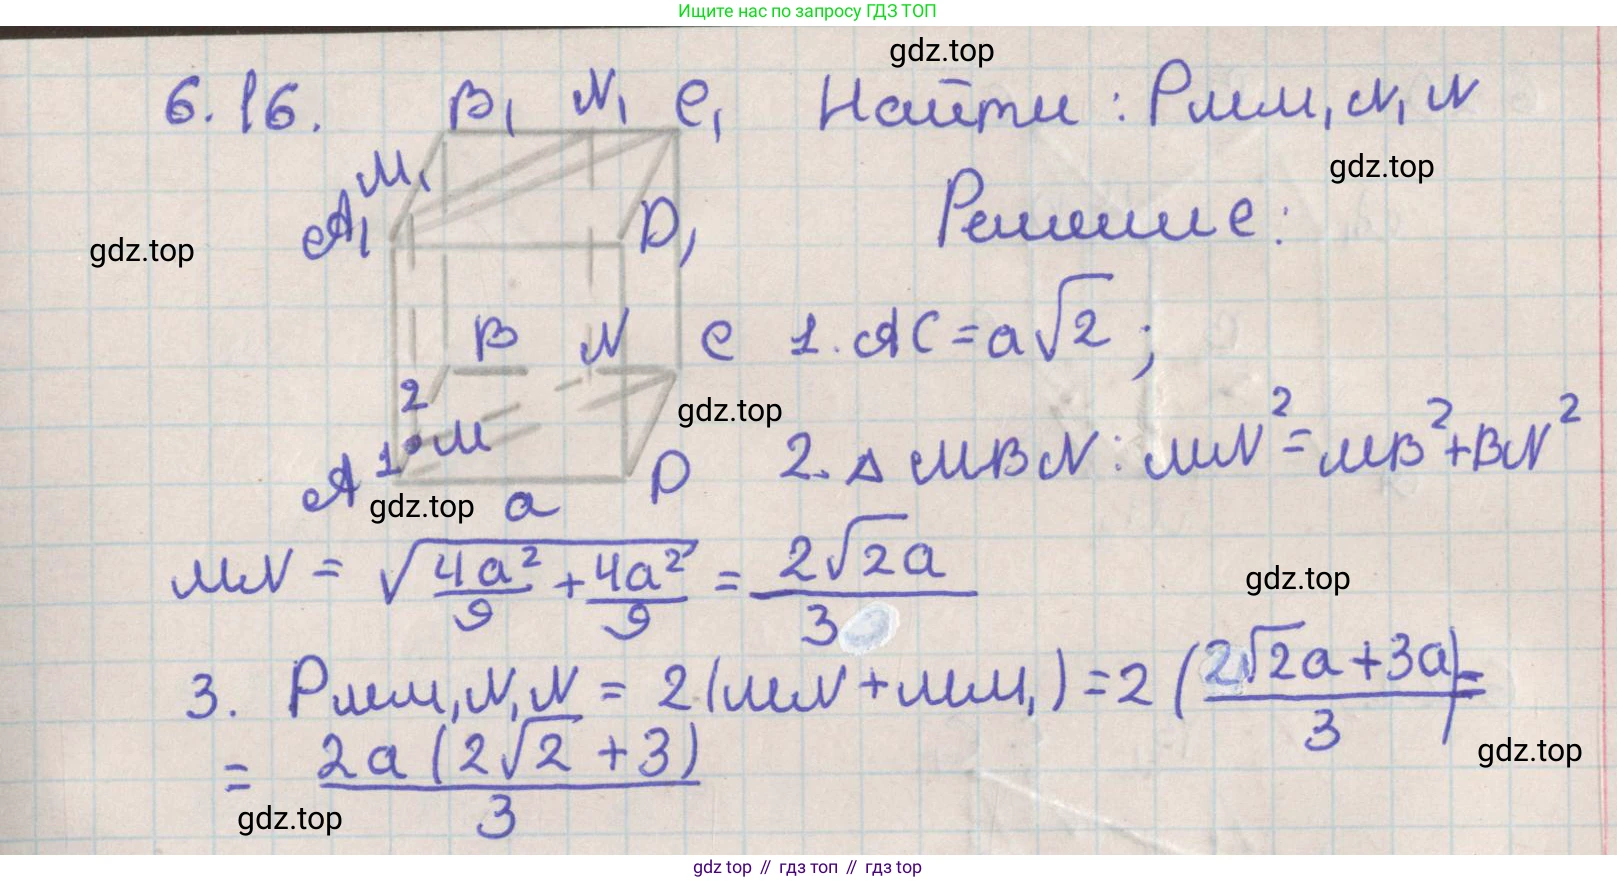 Ищите нас по запросу ГДЗ ТОП
gdz.top
6.16. B₁ N₁ C₁ Найти: Pмм₁N₁N
M₁ gdz.top
A₁ D₁ Решение:
gdz.top
B N C 1. AC = a√2;
2 gdz.top
A 1 M D 2. △ MBN: MN² = MB² + BN²
gdz.top a
MN = √(4a²/9 + 4a²/9) = 2√2a/3
gdz.top
3. Pмм₁N₁N = 2(MN + MM₁) = 2(2√2a + 3a/3) =
gdz.top
= 2a(2√2 + 3)/3
gdz.top
gdz top // гдз топ // gdz top